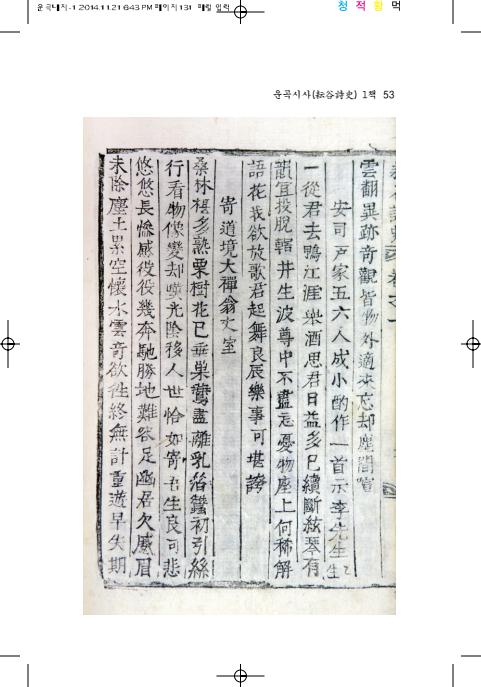 운곡내지-1 2014.11.21 6:43 PM 페이지131
청 적 황 먹
운곡시사(耘谷詩史) 1책 53
雲翻異跡奇觀皆物外適來忘却塵間喧
安司戶家五六人成小酌作一首示李先生
一從君去鴨江涯樂酒思君日益多已續斷絃琴有
韻宜投脫轄井生波尊中不盡忘憂物座上何稀解
語花我欲放歌君起舞良辰樂事可堪誇
寄道境大禪翁丈室
桑林椹多熟栗樹花已垂巢鶯盡離乳箔蠶初引絲
行看物像變却嘆光陰移人世恰如寄吾生良可悲
悠悠長慘慼役役幾奔馳勝地難 足幽居欠 眉
未除塵土累空懷水雲奇欲往終無計重遊早失期